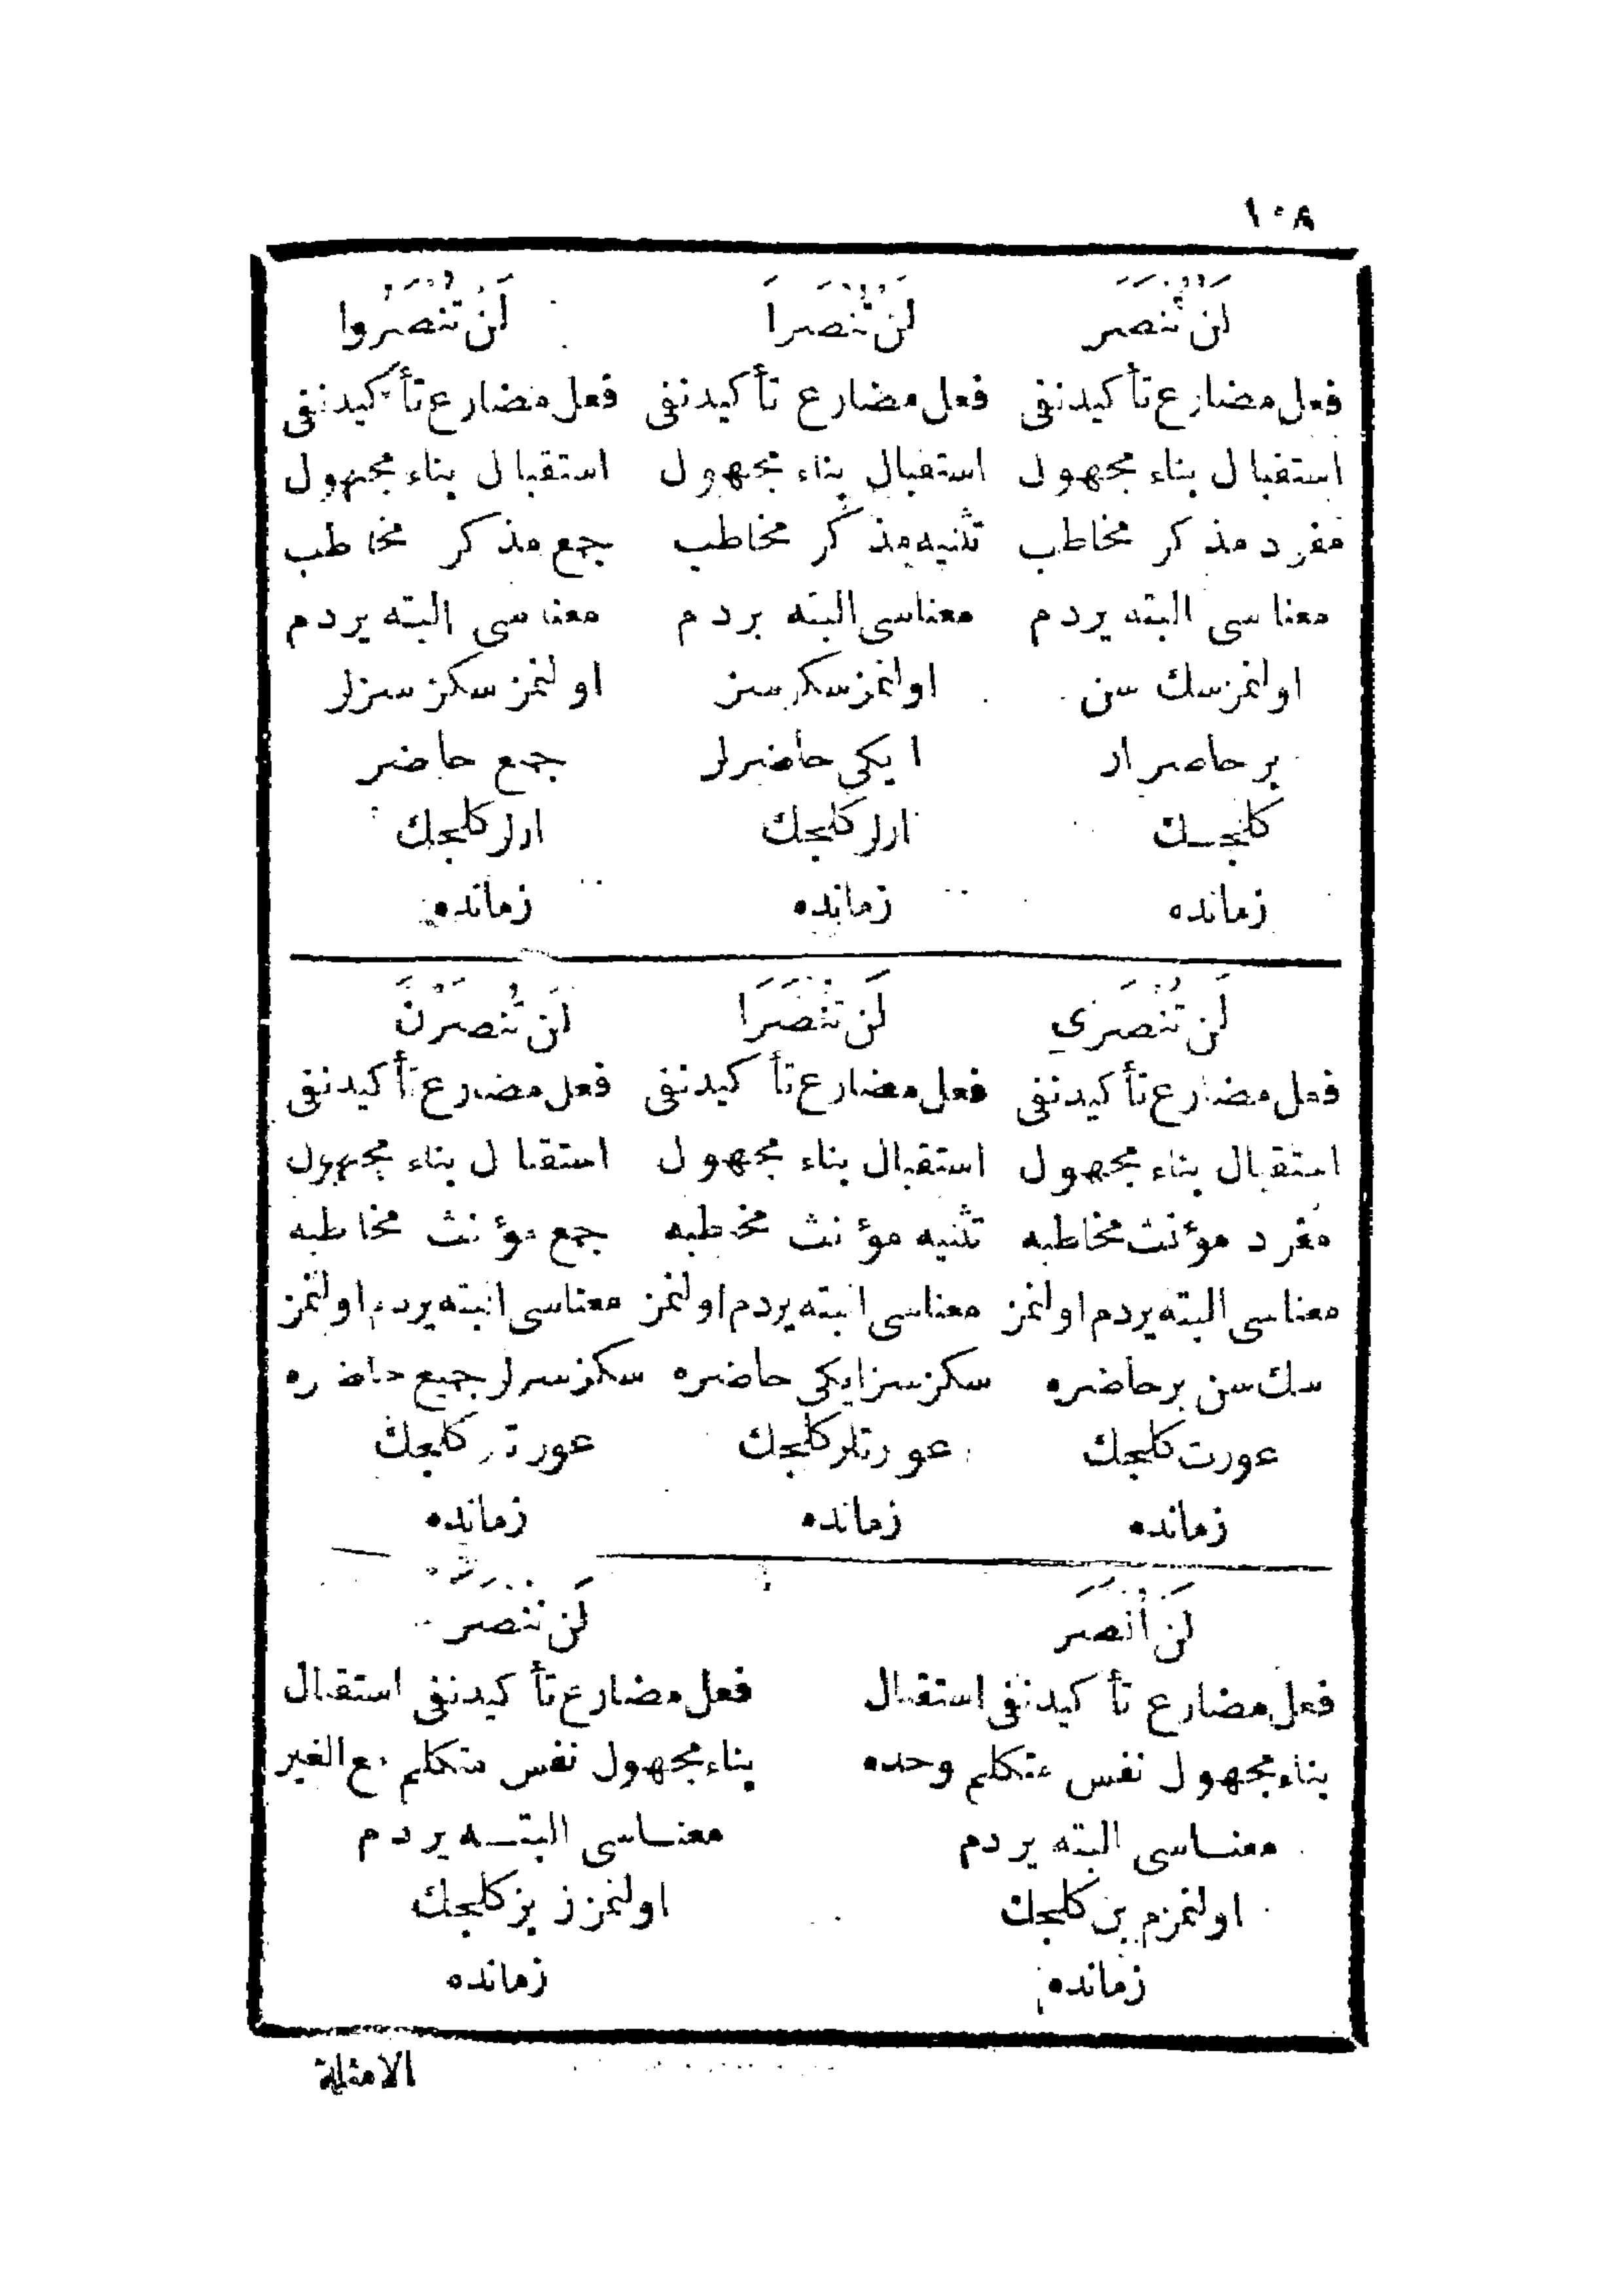 ١٠٨
لَنْ تُنْصَرَ
فعل مضارع تأكيد نفى
استقبال بناء مجهول
مفرد مذكر مخاطب
معناسى البته يردم
اولنمزسك سن
بر حاضر ار
كلنجسك
زمانده
لَنْ تُنْصَرَا
فعل مضارع تأكيد نفى
استقبال بناء مجهول
تثنيه مذكر مخاطب
معناسى البته بردم
اولنمزسكز سز
ايكى حاضرلر
ارلر كلجك
زمانده
لَنْ تُنْصَرُوا
فعل مضارع تأكيد نفى
استقبال بناء مجهول
جمع مذكر مخاطب
معناسى البته يردم
اولنمزسكز سزلر
جمع حاضر
ارلر كلجك
زمانده
لَنْ تُنْصَرِي
فعل مضارع تأكيد نفى
استقبال بناء مجهول
مفرد مؤنث مخاطبه
معناسى البته يردم اولنمز
سك سن بر حاضره
عورت كلجك
زمانده
لَنْ تُنْصَرَا
فعل مضارع تأكيد نفى
استقبال بناء مجهول
تثنيه مؤنث مخاطبه
معناسى البته يردم اولنمز
سكز سز ايكى حاضره
عورتلر كلجك
زمانده
لَنْ تُنْصَرْنَ
فعل مضارع تأكيد نفى
استقبال بناء مجهول
جمع مؤنث مخاطبه
معناسى البته يردم اولنمز
سكز سزلر جميع حاضره
عورتلر كلجك
زمانده
لَنْ اُنْصَرَ
فعل مضارع تأكيد نفى استقبال
بناء مجهول نفس متكلم وحده
معناسى البته يردم
اولنمزم بن كلجك
زمانده
لَنْ نُنْصَرَ
فعل مضارع تأكيد نفى استقبال
بناء مجهول نفس متكلم مع الغير
معناسى البته يردم
اولنمزز بز كلجك
زمانده
الامثلة